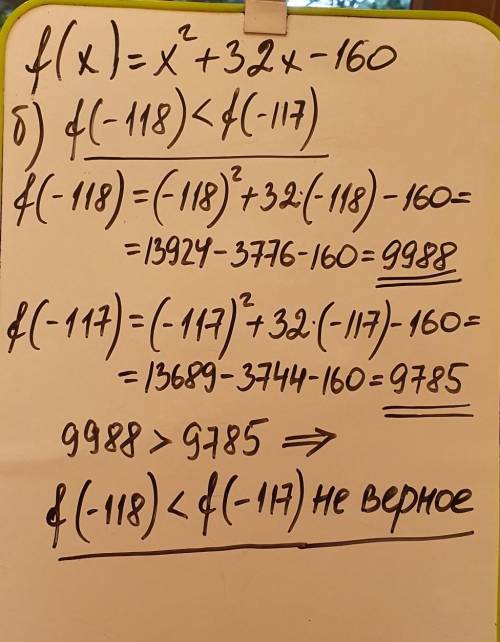 f(x)=x²+32x-160
б) f(-118)<f(-117)
f(-118)=(-118)²+32·(-118)-160=
=13924-3776-160=9988
f(-117)=(-117)²+32·(-117)-160=
=13689-3744-160=9785
9988>9785 ⇒
f(-118)<f(-117) не верное